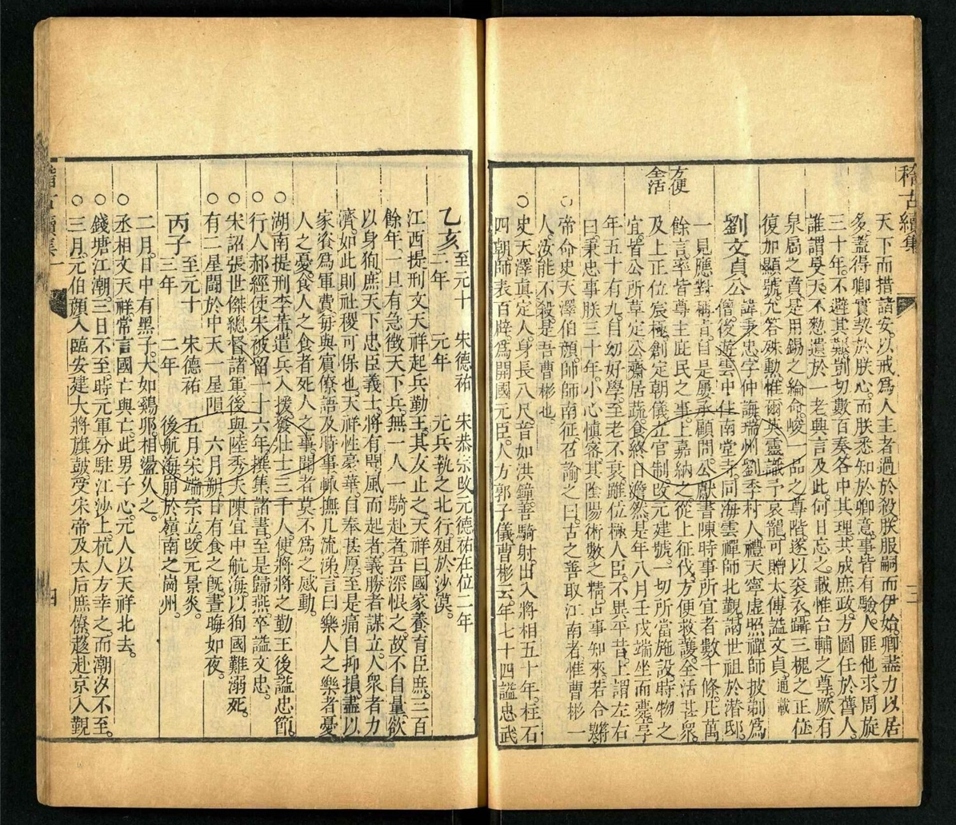 稽古續集
天下而措諸安以戒爲人主者過於殺朕服嗣而伊始卿盡力以居
多蓋得卿實契於朕心而朕悉知於卿意事皆有驗人匪他求周旋
三十年不避其艱劘切數百奏各中其理共成庶政方圖任於舊人
誰謂旻天不憖遺於一老興言及此何日忘之載惟台輔之尊厥有
泉扃之賁是用錫之綸命峻一品之尊階遂以衮衣躋三槐之正位
復加顯號允答殊勳惟爾英靈識予哀寵可贈太傅謚文貞通載
劉文貞公
諱秉忠字仲晦瑞州劉李村人禮天寧虛照禪師披剃爲
僧後遊雲中住南堂寺同海雲禪師北覲謁世祖於潛邸
一見應對稱旨自是屢承顧問公獻書陳時事所宜者數十條凡萬
餘言率皆尊主庇民之事上嘉納之從上征伐方便救護全活甚衆
方便
全活
及上正位宸極創定朝儀立官制改元建號一切所當施設時物之
宜皆公所草定公齋居蔬食終日澹然是年八月壬戌端坐而薨享
年五十有九自幼好學至老不衰雖位極人臣不異平昔上謂左右
曰秉忠事朕三十年小心慎密其陰陽術數之精占事知來若合符
○帝命史天澤伯顔帥師南征召諭之曰古之善取江南者惟曹彬一
人汝能不殺是吾曹彬也
○史天澤真定人身長八尺音如洪鐘善騎射出入將相五十年柱石
四朝師表百辟爲開國元臣人方郭子儀曹彬云年七十四謚忠武
三
乙亥 至元十二年 宋德祐元年 宋恭宗改元德祐在位二年
元兵執之北行殂於沙漠
江西提刑文天祥起兵勤王其友止之天祥曰國家養育臣庶三百
餘年一旦有急徴天下兵無一人一騎赴者吾深恨之故不自量欲
以身狥庶天下忠臣義士將有聞風而起者義勝者謀立人衆者力
濟如此則社稷可保也天祥性豪華自奉甚厚至是痛自抑損盡以
家貲爲軍費每與賓僚語及時事輒撫几流涕言曰樂人之樂者憂
人之憂食人之食者死人之事聞者莫不爲之感動
○湖南提刑李芾遣兵入援發壯士三千人使將將之勤王後謚忠節
○行人郝經使宋被留一十六年撰集諸書至是歸燕卒謚文忠
○宋詔張世傑總督諸軍後與陸秀夫陳宜中航海以狥國難溺死
○有二星鬬於中天一星隕 六月朔日有食之旣晝晦如夜
丙子 至元十三年 宋德祐二年 五月宋端宗立改元景炎
後航海崩於嶺南之崗州
二月日中有黑子大如鷄卵相盪久之
○丞相文天祥常言國亡與亡此男子心元人以天祥北去
○錢塘江潮三日不至時元軍分駐江沙上杭人方幸之而潮汐不至
○三月元伯顔入臨安建大將旗鼓受宋帝及太后庶僚趍赴京入覲
稽古續集
四